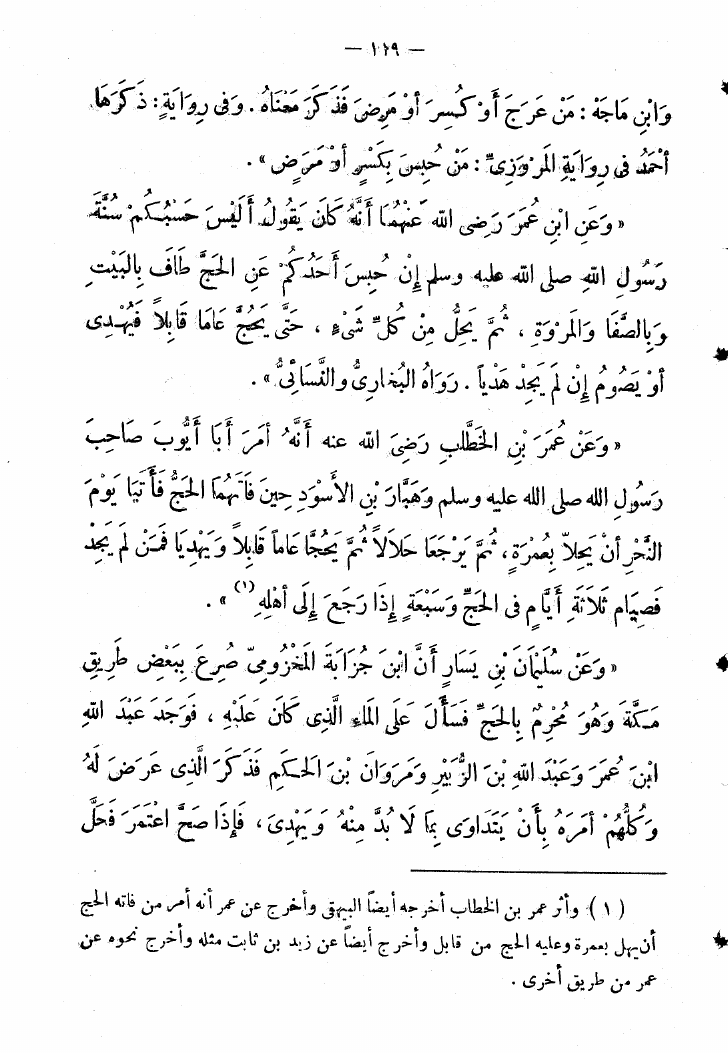 — ١١٩ —
وَابْنِ مَاجَهْ : مَنْ عَرَجَ أَوْ كُسِرَ أَوْ مَرِضَ فَذَكَرَ مَعْنَاهُ . وَفِى رِوَايَةٍ : ذَكَرَهَا
أَحْمَدُ فِى رِوَايَةِ المَرْوَزِىِّ : مَنْ حُبِسَ بِكَسْرٍ أَوْ مَرَضٍ » .
« وَعَنِ ابْنِ عُمَرَ رَضِى الله عَنْهُمَا أَنَّهُ كَانَ يَقُولُ أَلَيْسَ حَسْبُكُمْ سُنَّةَ
رَسُولِ اللهِ صلى الله عليه وسلم إِنْ حُبِسَ أَحَدُكُمْ عَنِ الحَجِّ طَافَ بِالبَيْتِ
وَبِالصَّفَا وَالمَرْوَةِ ، ثُمَّ يَحِلُّ مِنْ كُلِّ شَىْءٍ ، حَتَّى يَحُجَّ عَامَا قَابِلاً فَيُهْدِى
أَوْ يَصُومُ إِنْ لَمْ يَجِدْ هَدْياً . رَوَاهُ البُخَارِىُّ والنَّسَائىُّ » .
« وَعَنْ عُمَرَ بْنِ الخَطَّابِ رَضِىَ الله عنه أَنَّهُ أَمَرَ أَبَا أَيُّوبَ صَاحِبَ
رَسُولِ الله صلى الله عليه وسلم وَهَبَّارَ بْنِ الأَسْوَدِ حِينَ فَاتَهُمَا الحَجُّ فَأَتَيَا يَوْمَ
النَّحْرِ أَنْ يَحِلاَّ بِعُمْرَةٍ ، ثُمَّ يَرْجَعَا حَلاَلاً ثُمَّ يَحُجَّا عَاماً قَابِلاً وَيَهْدِيَا فَمَنْ لَمْ يَجِدْ
فَصِيَام ثَلاَثَةِ أَيَّامٍ فى الحَجِّ وَسَبْعَةٍ إِذَا رَجَعَ إِلَى أَهْلِهِ (١) » .
« وَعَنْ سُلَيْمَانَ بْنِ يَسَارٍ أَنَّ ابْنَ حُزَابَةَ المَخْزُومِىَّ صُرِعَ بِبَعْضِ طَرِيقِ
مَكَّةَ وَهُوَ مُحْرِمٌ بِالحَجِّ فَسَأَلَ عَلَى المَاءِ الَّذِى كَانَ عَلَيْهِ ، فَوَجَدَ عَبْدَ اللهِ
ابْنَ عُمَرَ وَعَبْدَ اللهِ بْنَ الزُّبَيْرِ وَمَروَانَ بْنَ الحَكَمِ فَذَكَرَ الَّذِى عَرَضَ لَهُ
وَكُلُّهُمْ أَمَرَهُ بِأَنْ يَتَدَاوَى بِمَا لَا بُدَّ مِنْهُ وَيَهْدِىَ ، فَإِذَا صَحَّ اعْتَمَرَ فَحَلَّ
( ١ ) وأثر عمر بن الخطاب أخرجه أيضاً البيهقى وأخرج عن عمر أنه أمر من فاته الحج
أن يهل بعمرة وعليه الحج من قابل وأخرج أيضاً عن زيد بن ثابت مثله وأخرج نحوه عن
عمر من طريق أخرى .